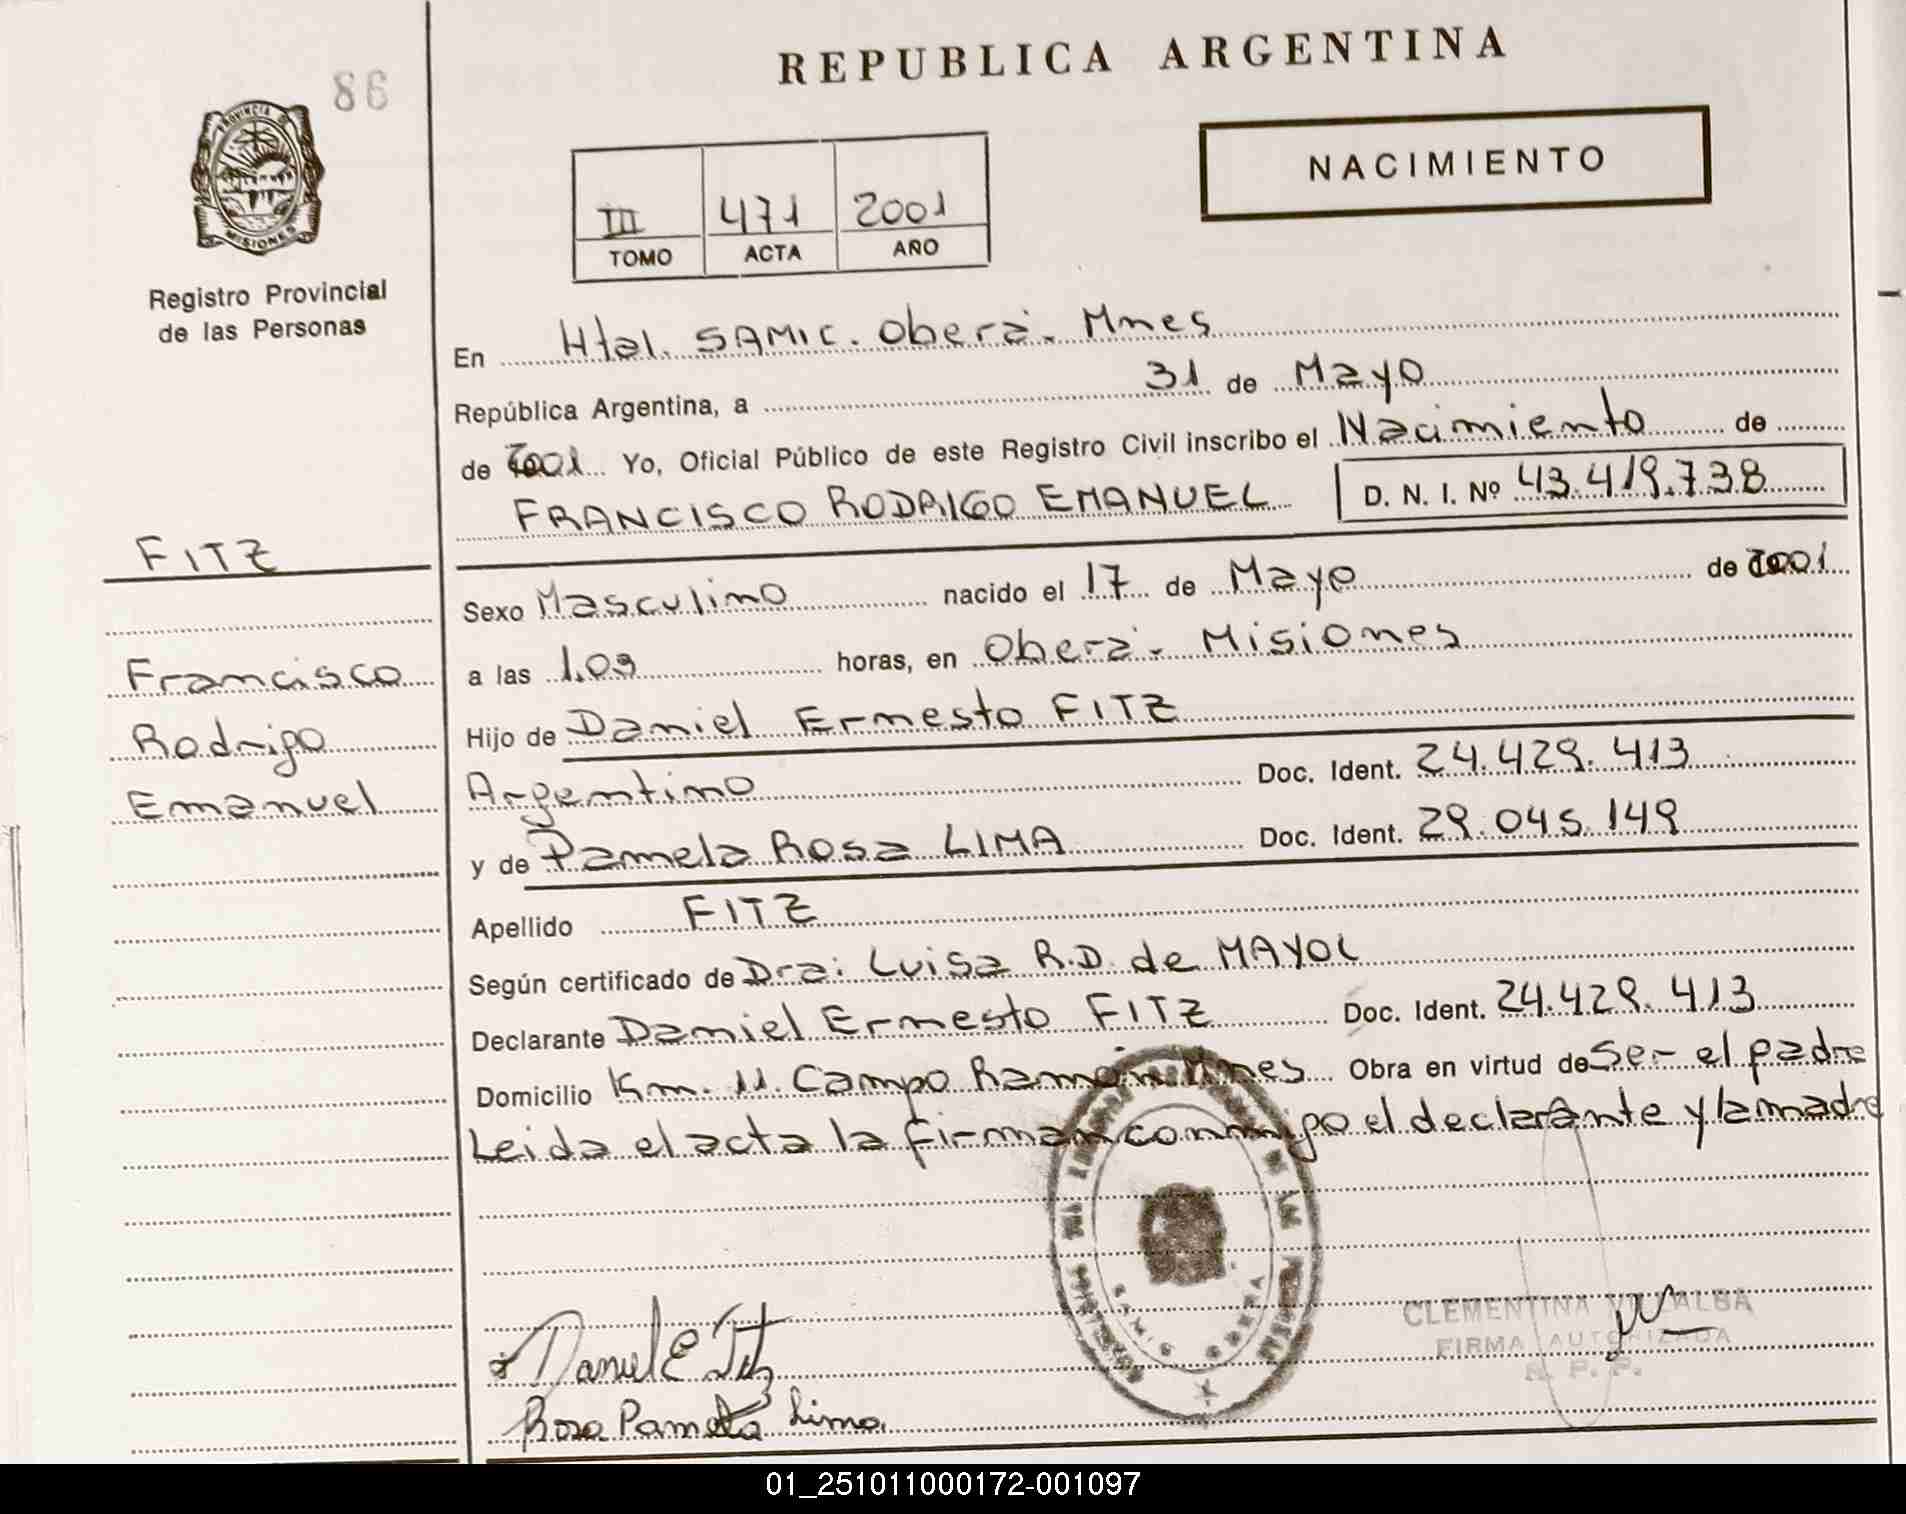 86
REPUBLICA ARGENTINA
PROVINCIA DE
MISIONES
NACIMIENTO
III 471 2001
TOMO ACTA AÑO
Registro Provincial
de las Personas
En Htal. SAMIC. Oberá. Mnes
República Argentina, a 31 de Mayo
de 2001 Yo, Oficial Público de este Registro Civil inscribo el Nacimiento de
FRANCISCO RODRIGO EMANUEL D. N. I. Nº 43.419.738
FITZ
Sexo Masculino nacido el 17 de Mayo de 2001
Francisco
a las 1.09 horas, en Oberá. Misiones
Rodrigo
Hijo de Daniel Ernesto FITZ
Emanuel
Argentino Doc. Ident. 24.429.413
y de Pamela Rosa LIMA Doc. Ident. 29.045.149
Apellido FITZ
Según certificado de Dra: Luisa R.D. de MAYOL
Declarante Daniel Ernesto FITZ Doc. Ident. 24.429.413
Domicilio Km. 11. Campo Ramón Mnes Obra en virtud de Ser el padre
Leida el acta la firman conmigo el declarante y la madre
CLEMENTINA VILLALBA
FIRMA AUTORIZADA
R. P. P.
Daniel E Fitz
Rosa Pamela Lima
01_251011000172-001097